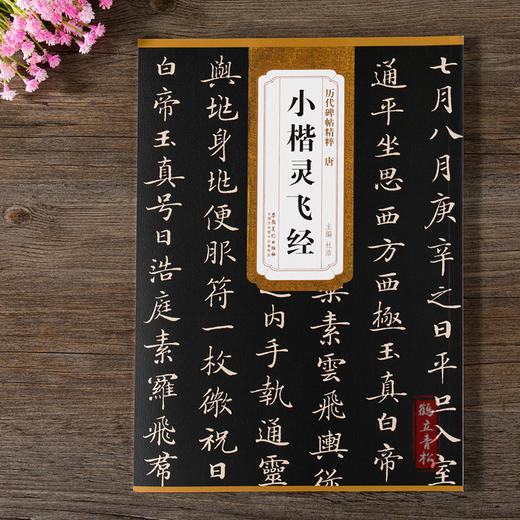 历代碑帖精粹 唐
小楷灵飞经
主编 杜浩
安徽美术出版社
七月八月庚辛之日平旦入室
通平坐思西方西極玉真白帝
素雲飛輿從
之内手執通靈
與地身地便服符一枚微祝曰
白帝玉真号曰浩庭素羅飛裙
鹤立青松